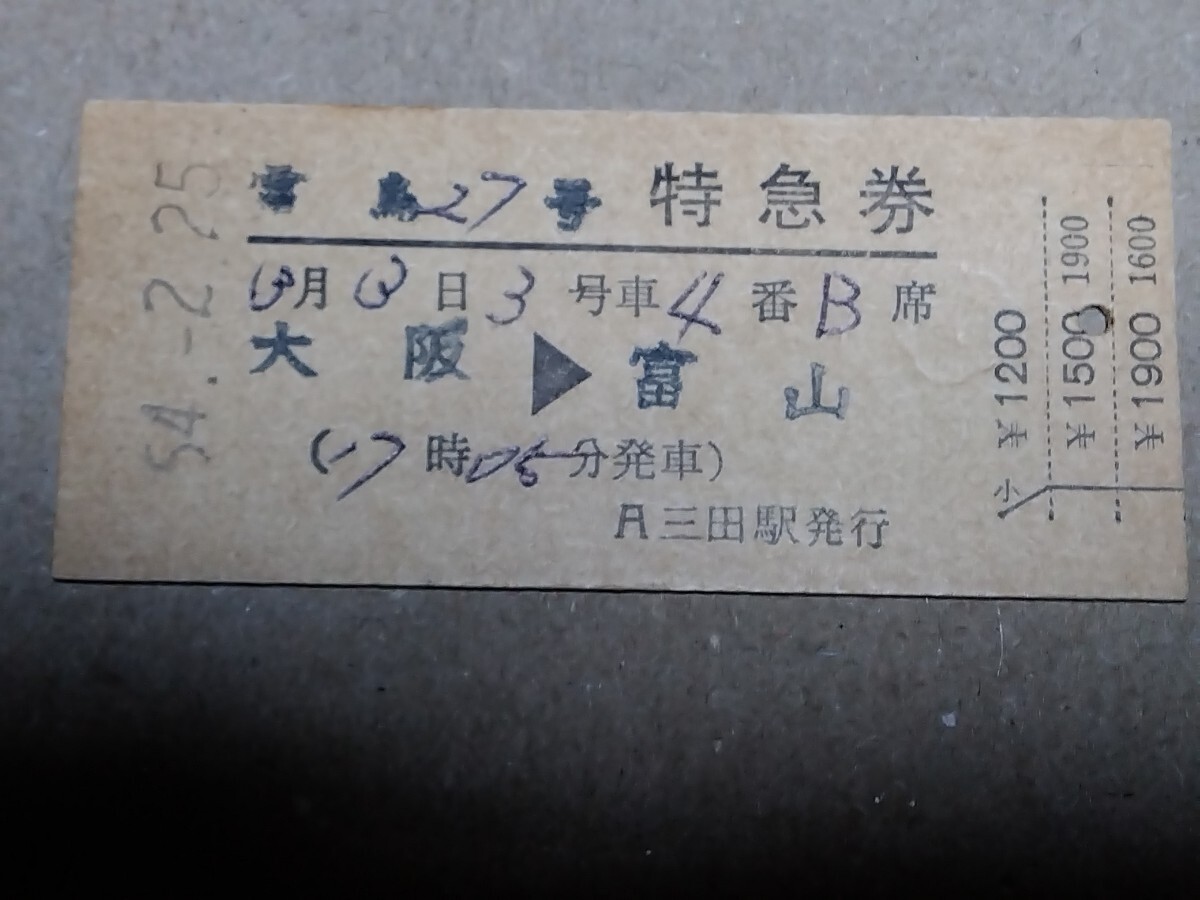 54.-2.25
雷鳥27号 特急券
3月3日3号車4番B席
大阪▶富山
(17時05分発車)
A三田駅発行
小
¥1200
¥1500 1900
¥1900 1600